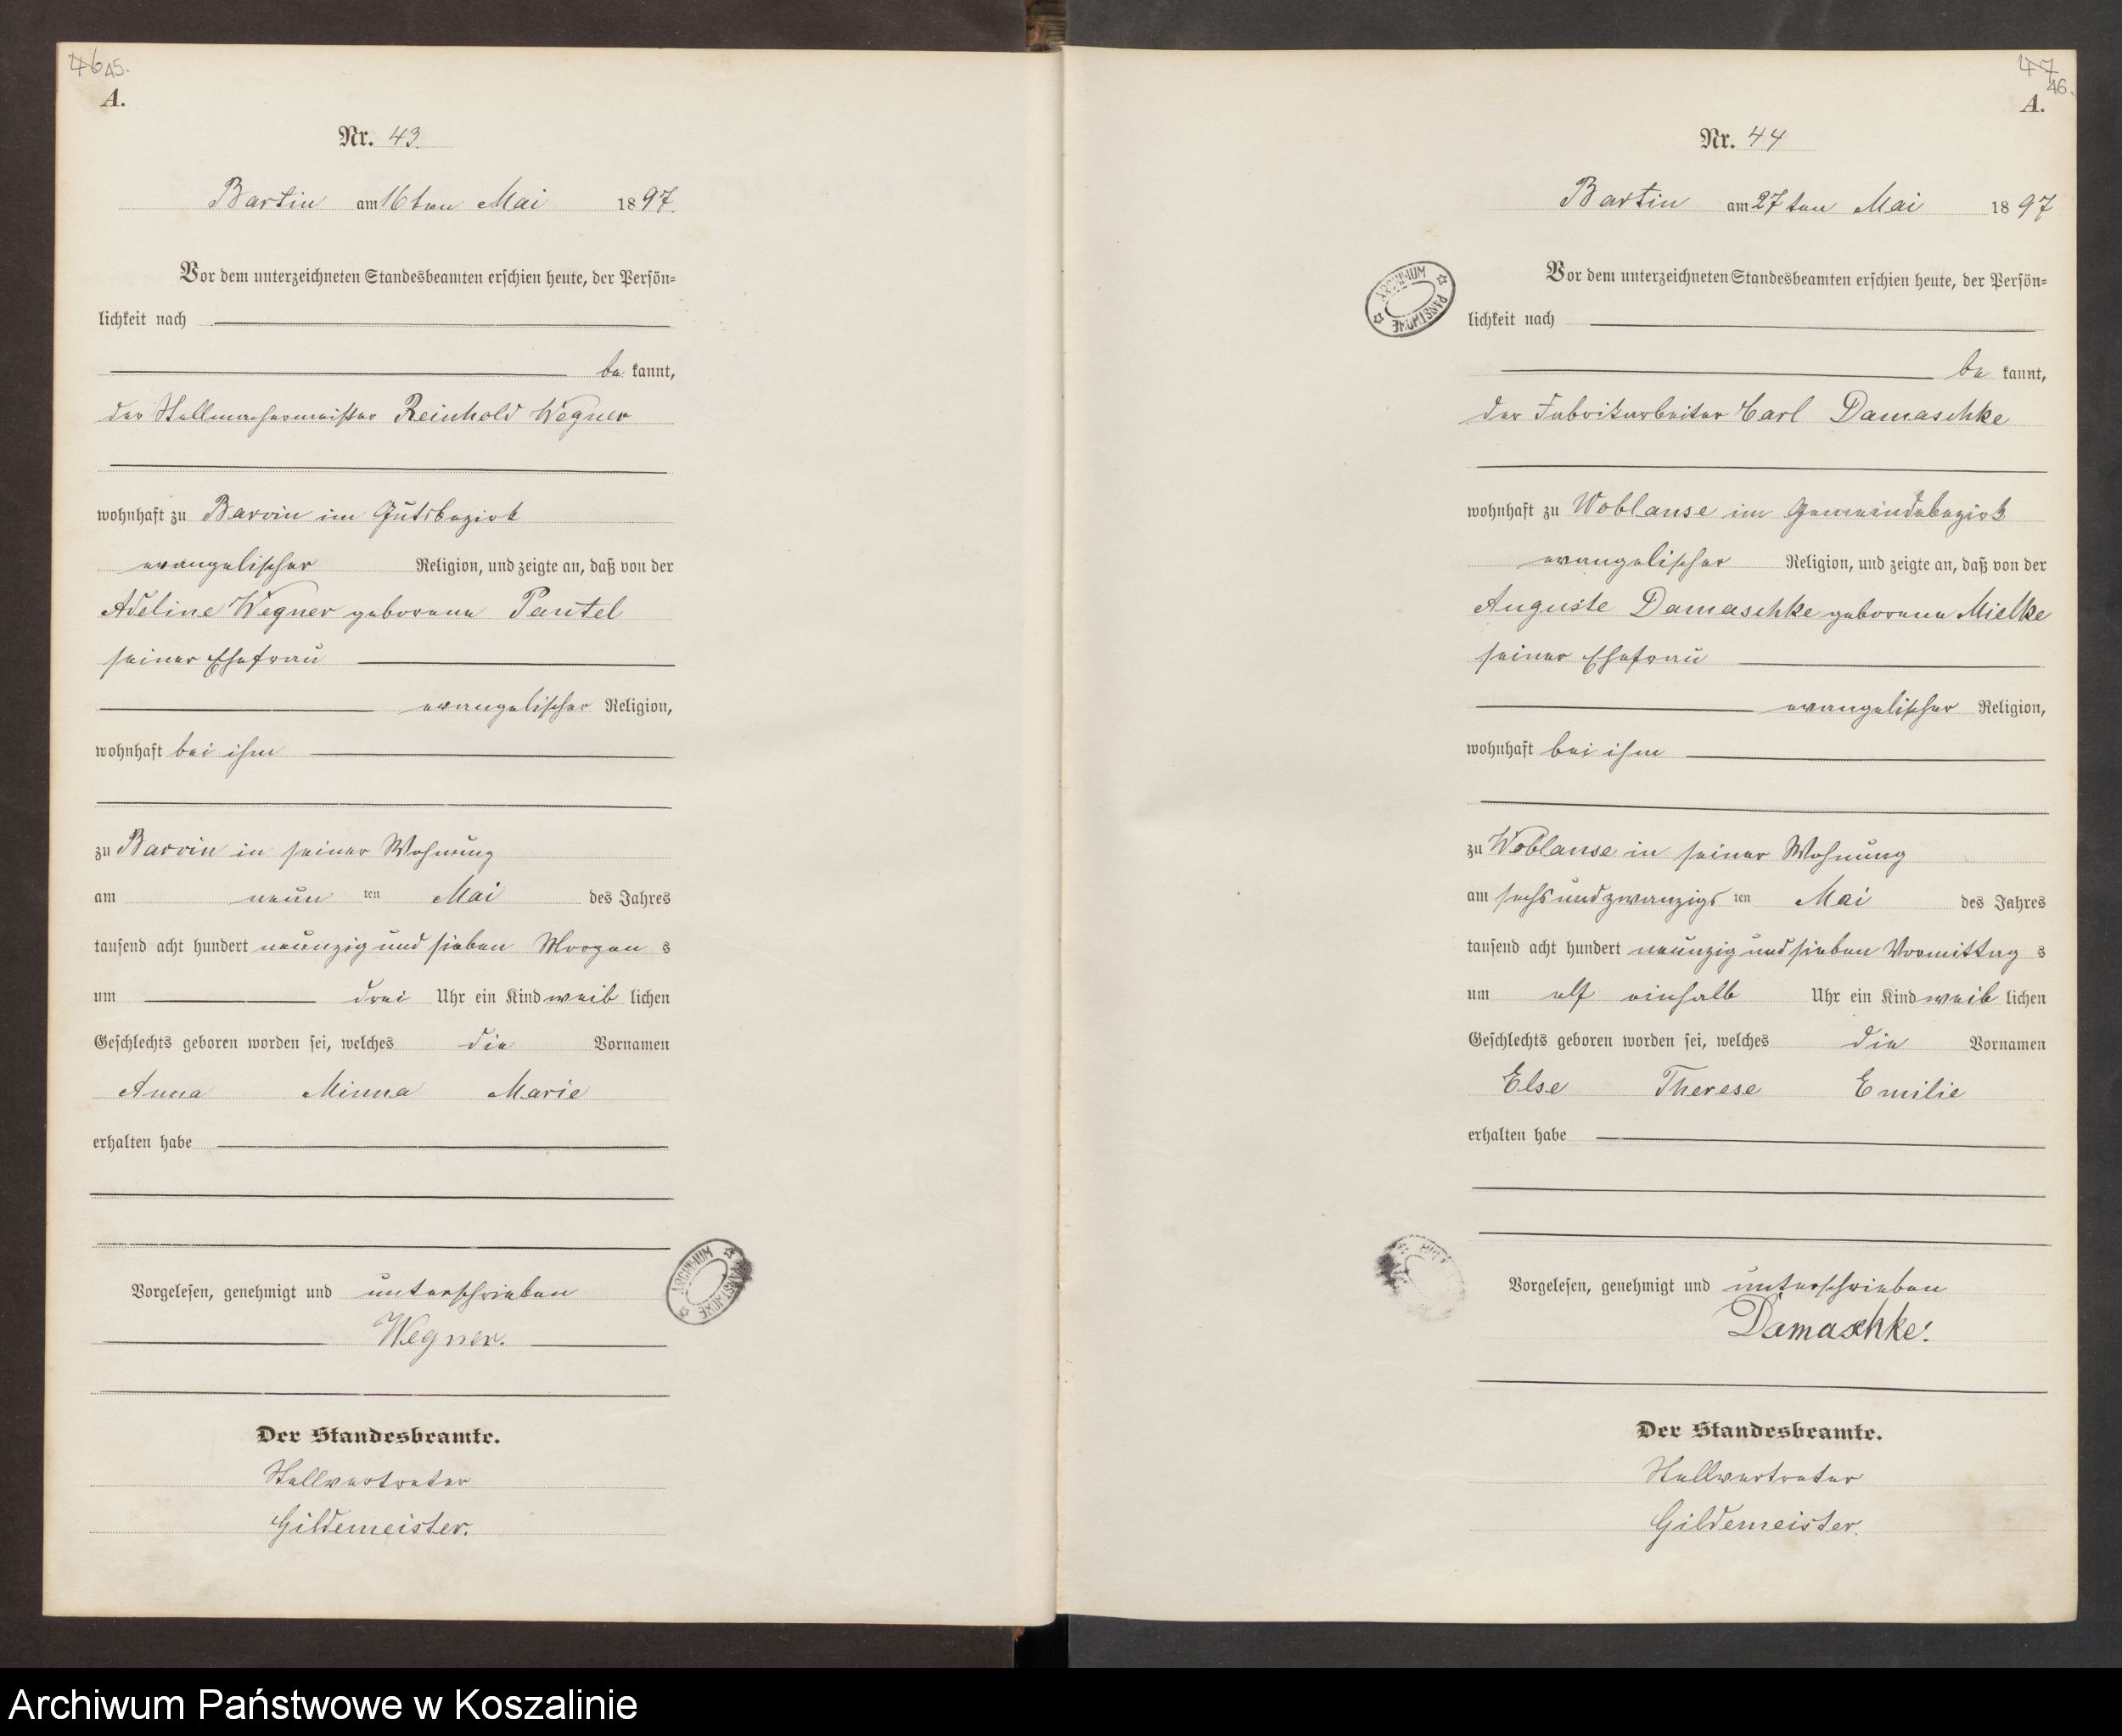 46 45.
A.
Nr. 43.
Bartin am 16ten Mai 1897.
Vor dem unterzeichneten Standesbeamten erschien heute, der Persön=
lichkeit nach
be kannt,
der Stellmachermeister Reinhold Wegner
wohnhaft zu Barvin im Gutsbezirk
evangelischer Religion, und zeigte an, daß von der
Adeline Wegner geborene Pantel
seiner Ehefrau
evangelischer Religion,
wohnhaft bei ihm
zu Barvin in seiner Wohnung
am neun ten Mai des Jahres
tausend acht hundert neunzig und sieben Morgen s
um drei Uhr ein Kind weib lichen
Geschlechts geboren worden sei, welches die Vornamen
Anna Minna Marie
erhalten habe
Vorgelesen, genehmigt und unterschrieben
Wegner.
Der Standesbeamte.
Stellvertreter
Gildemeister.
ARCHIWUM PAŃSTWOWE
47 46.
A.
Nr. 44
Bartin am 27ten Mai 1897
Vor dem unterzeichneten Standesbeamten erschien heute, der Persön=
lichkeit nach
be kannt,
der Fabrikarbeiter Carl Damaschke
wohnhaft zu Woblanse im Gemeindebezirk
evangelischer Religion, und zeigte an, daß von der
Auguste Damaschke geborene Mielke
seiner Ehefrau
evangelischer Religion,
wohnhaft bei ihm
zu Woblanse in seiner Wohnung
am sechsundzwanzigs ten Mai des Jahres
tausend acht hundert neunzig und sieben Vormittag s
um elf einhalb Uhr ein Kind weib lichen
Geschlechts geboren worden sei, welches die Vornamen
Else Therese Emilie
erhalten habe
Vorgelesen, genehmigt und unterschrieben
Damaschke.
Der Standesbeamte.
Stellvertreter
Gildemeister.
ARCHIWUM PAŃSTWOWE
Archiwum Państwowe w Koszalinie